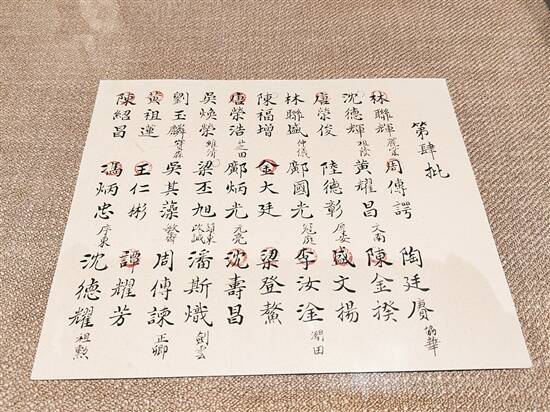 第肆批
林聯輝
沈德輝 祖蔭
唐榮俊
林聯盛 仲儀
陳福增
唐榮浩 芝田
吳煥榮 維清
劉玉麟 寶森
黃祖運
陳紹昌
周傳諤
黃耀昌 文南
陸德彰 厚安
鄺國光
金大廷
鄺炳光 元亮
梁丕旭 鎮東 改誠
吳其藻
王仁彬
馮炳忠 序東
陶廷賡 協華
陳金揆
盛文揚
李汝淦 潤田
梁登鰲
沈壽昌
潘斯熾 劍雲
周傳諫 正卿
譚耀芳
沈德耀 祖勲